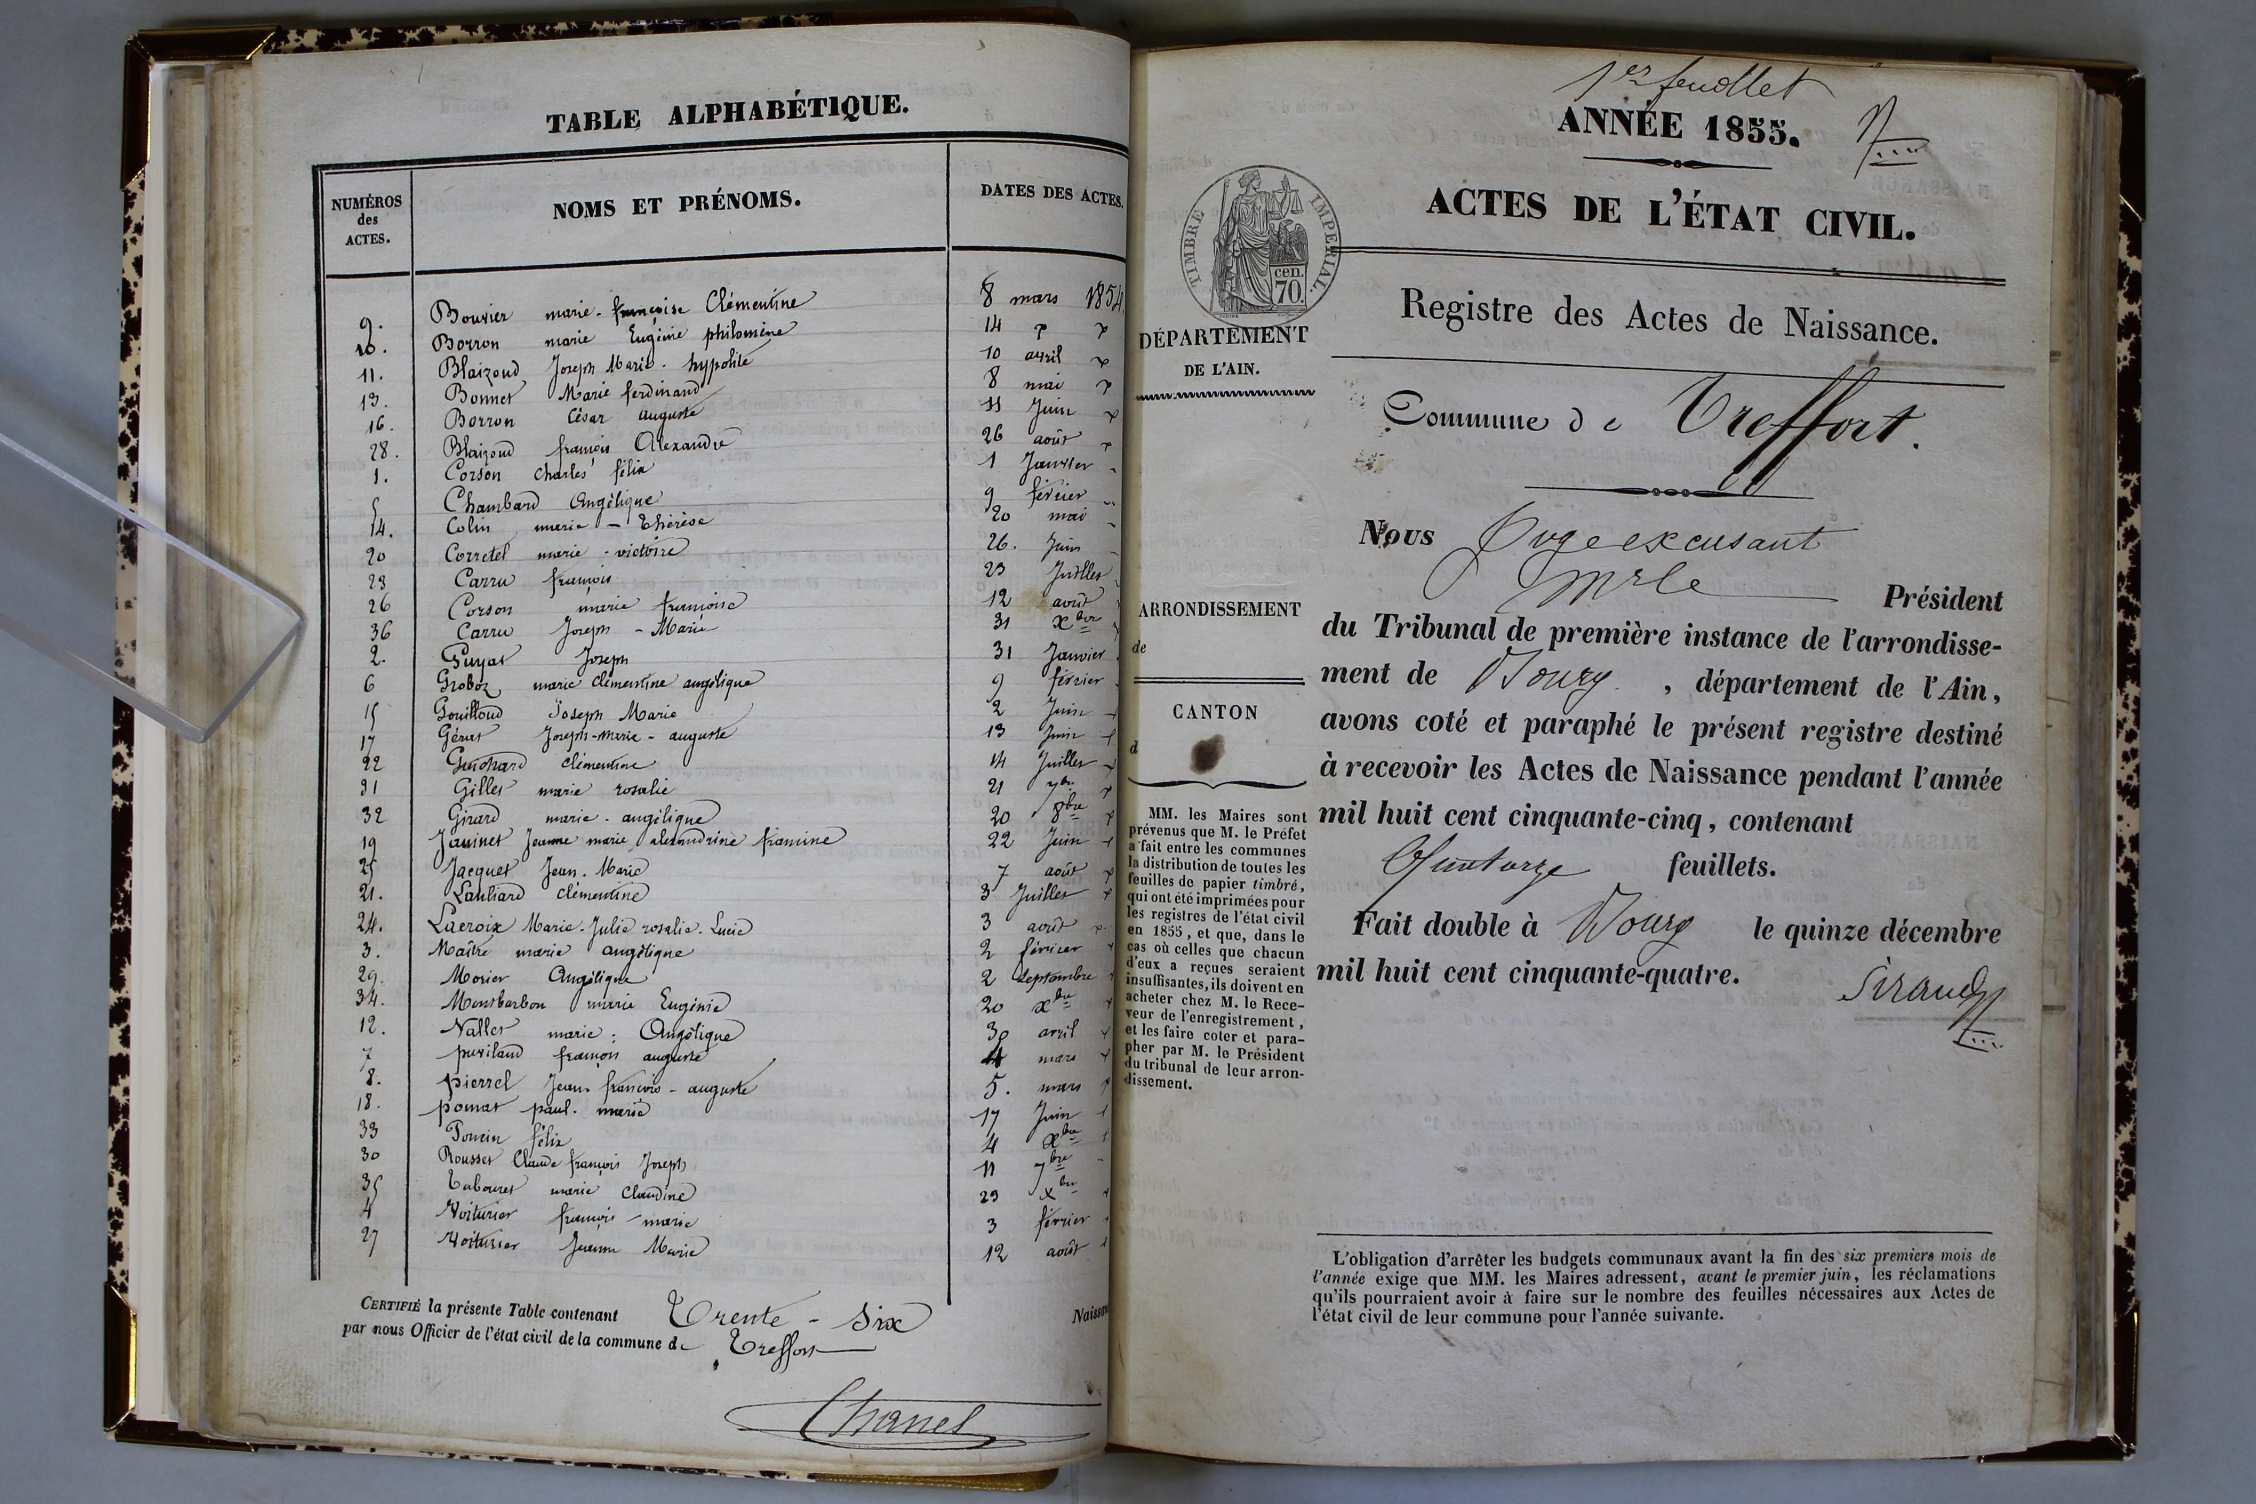 TABLE ALPHABÉTIQUE.
NUMÉROS des ACTES. NOMS ET PRÉNOMS. DATES DES ACTES.
9. Bouvier marie-françoise Clémentine 8 mars 1854
10. Borron marie Eugénie philomène 14
11. Blaizoud Joseph Marie. hypolite 10 avril
13. Bonnet Marie ferdinand 8 mai
16. Borron César auguste 11 Juin
28. Blaizoud françois Alexandre 26 août
1. Corson Charles félix 1 Janvier
5 Chambard Angélique 9 février
14. Colin marie - Thérèse 20 mai
20 Corretel marie - victoire 26. Juin
23 Carru françois 23 Juillet
26 Corson marie françoise 12 août
36 Carru Joseph - Marie 31 Xbre
2. Guyat Joseph 31 Janvier
6 Groboz marie clémentine angélique 9 février
15 Gouilloud Joseph Marie 2 Juin
17 Joseph-marie - auguste 13 Juin
22 Guichard clémentine 14 Juillet
31 Gillet marie rosalie 21 7bre
32 Girard marie - angélique 20 8bre
19 Jeanne marie alexandrine 22 Juin
25 Jacquet Jean. Marie 7 août
21. clémentine 3 Juillet
24. Lacroix Marie. Julie rosalie. Lucie 3 août
3. Maître marie angélique 2 février
29. Morier Angélique 2 Septembre
34. Montbarbon marie Eugénie 20 Xbre
12. Nallet marie: Angélique 30 avril
7 puviland françois auguste 4 mars
8. pierrel Jean françois - auguste 5. mars
18. pomat paul. marie 17 Juin
33 félix 4 Xbre
30 Rousset Claude françois Joseph 11 7bre
35 Tabouret marie claudine 23 Xbre
4 Voiturier françois - marie 3 février
27 Voiturier Jeanne Marie 12 août
CERTIFIÉ la présente Table contenant Trente - Six
par nous Officier de l'état civil de la commune de Treffort
Chanel
1er feuillet
ANNÉE 1855.
ACTES DE L'ÉTAT CIVIL.
TIMBRE IMPERIAL.
cen.
70.
Registre des Actes de Naissance.
DÉPARTEMENT
DE L'AIN.
Commune de Treffort.
ARRONDISSEMENT
de
CANTON
d
MM. les Maires sont
prévenus que M. le Préfet
a fait entre les communes
la distribution de toutes les
feuilles de papier timbré,
qui ont été imprimées pour
les registres de l'état civil
en 1855, et que, dans le
cas où celles que chacun
d'eux a reçues seraient
insuffisantes, ils doivent en
acheter chez M. le Rece-
veur de l'enregistrement,
et les faire coter et para-
pher par M. le Président
du tribunal de leur arron-
dissement.
Nous Juge excusant
Mr le Président
du Tribunal de première instance de l'arrondisse-
ment de Bourg, département de l'Ain,
avons coté et paraphé le présent registre destiné
à recevoir les Actes de Naissance pendant l'année
mil huit cent cinquante-cinq, contenant
Quatorze feuillets.
Fait double à Bourg le quinze décembre
mil huit cent cinquante-quatre.
Sirand
L'obligation d'arrêter les budgets communaux avant la fin des six premiers mois de
l'année exige que MM. les Maires adressent, avant le premier juin, les réclamations
qu'ils pourraient avoir à faire sur le nombre des feuilles nécessaires aux Actes de
l'état civil de leur commune pour l'année suivante.